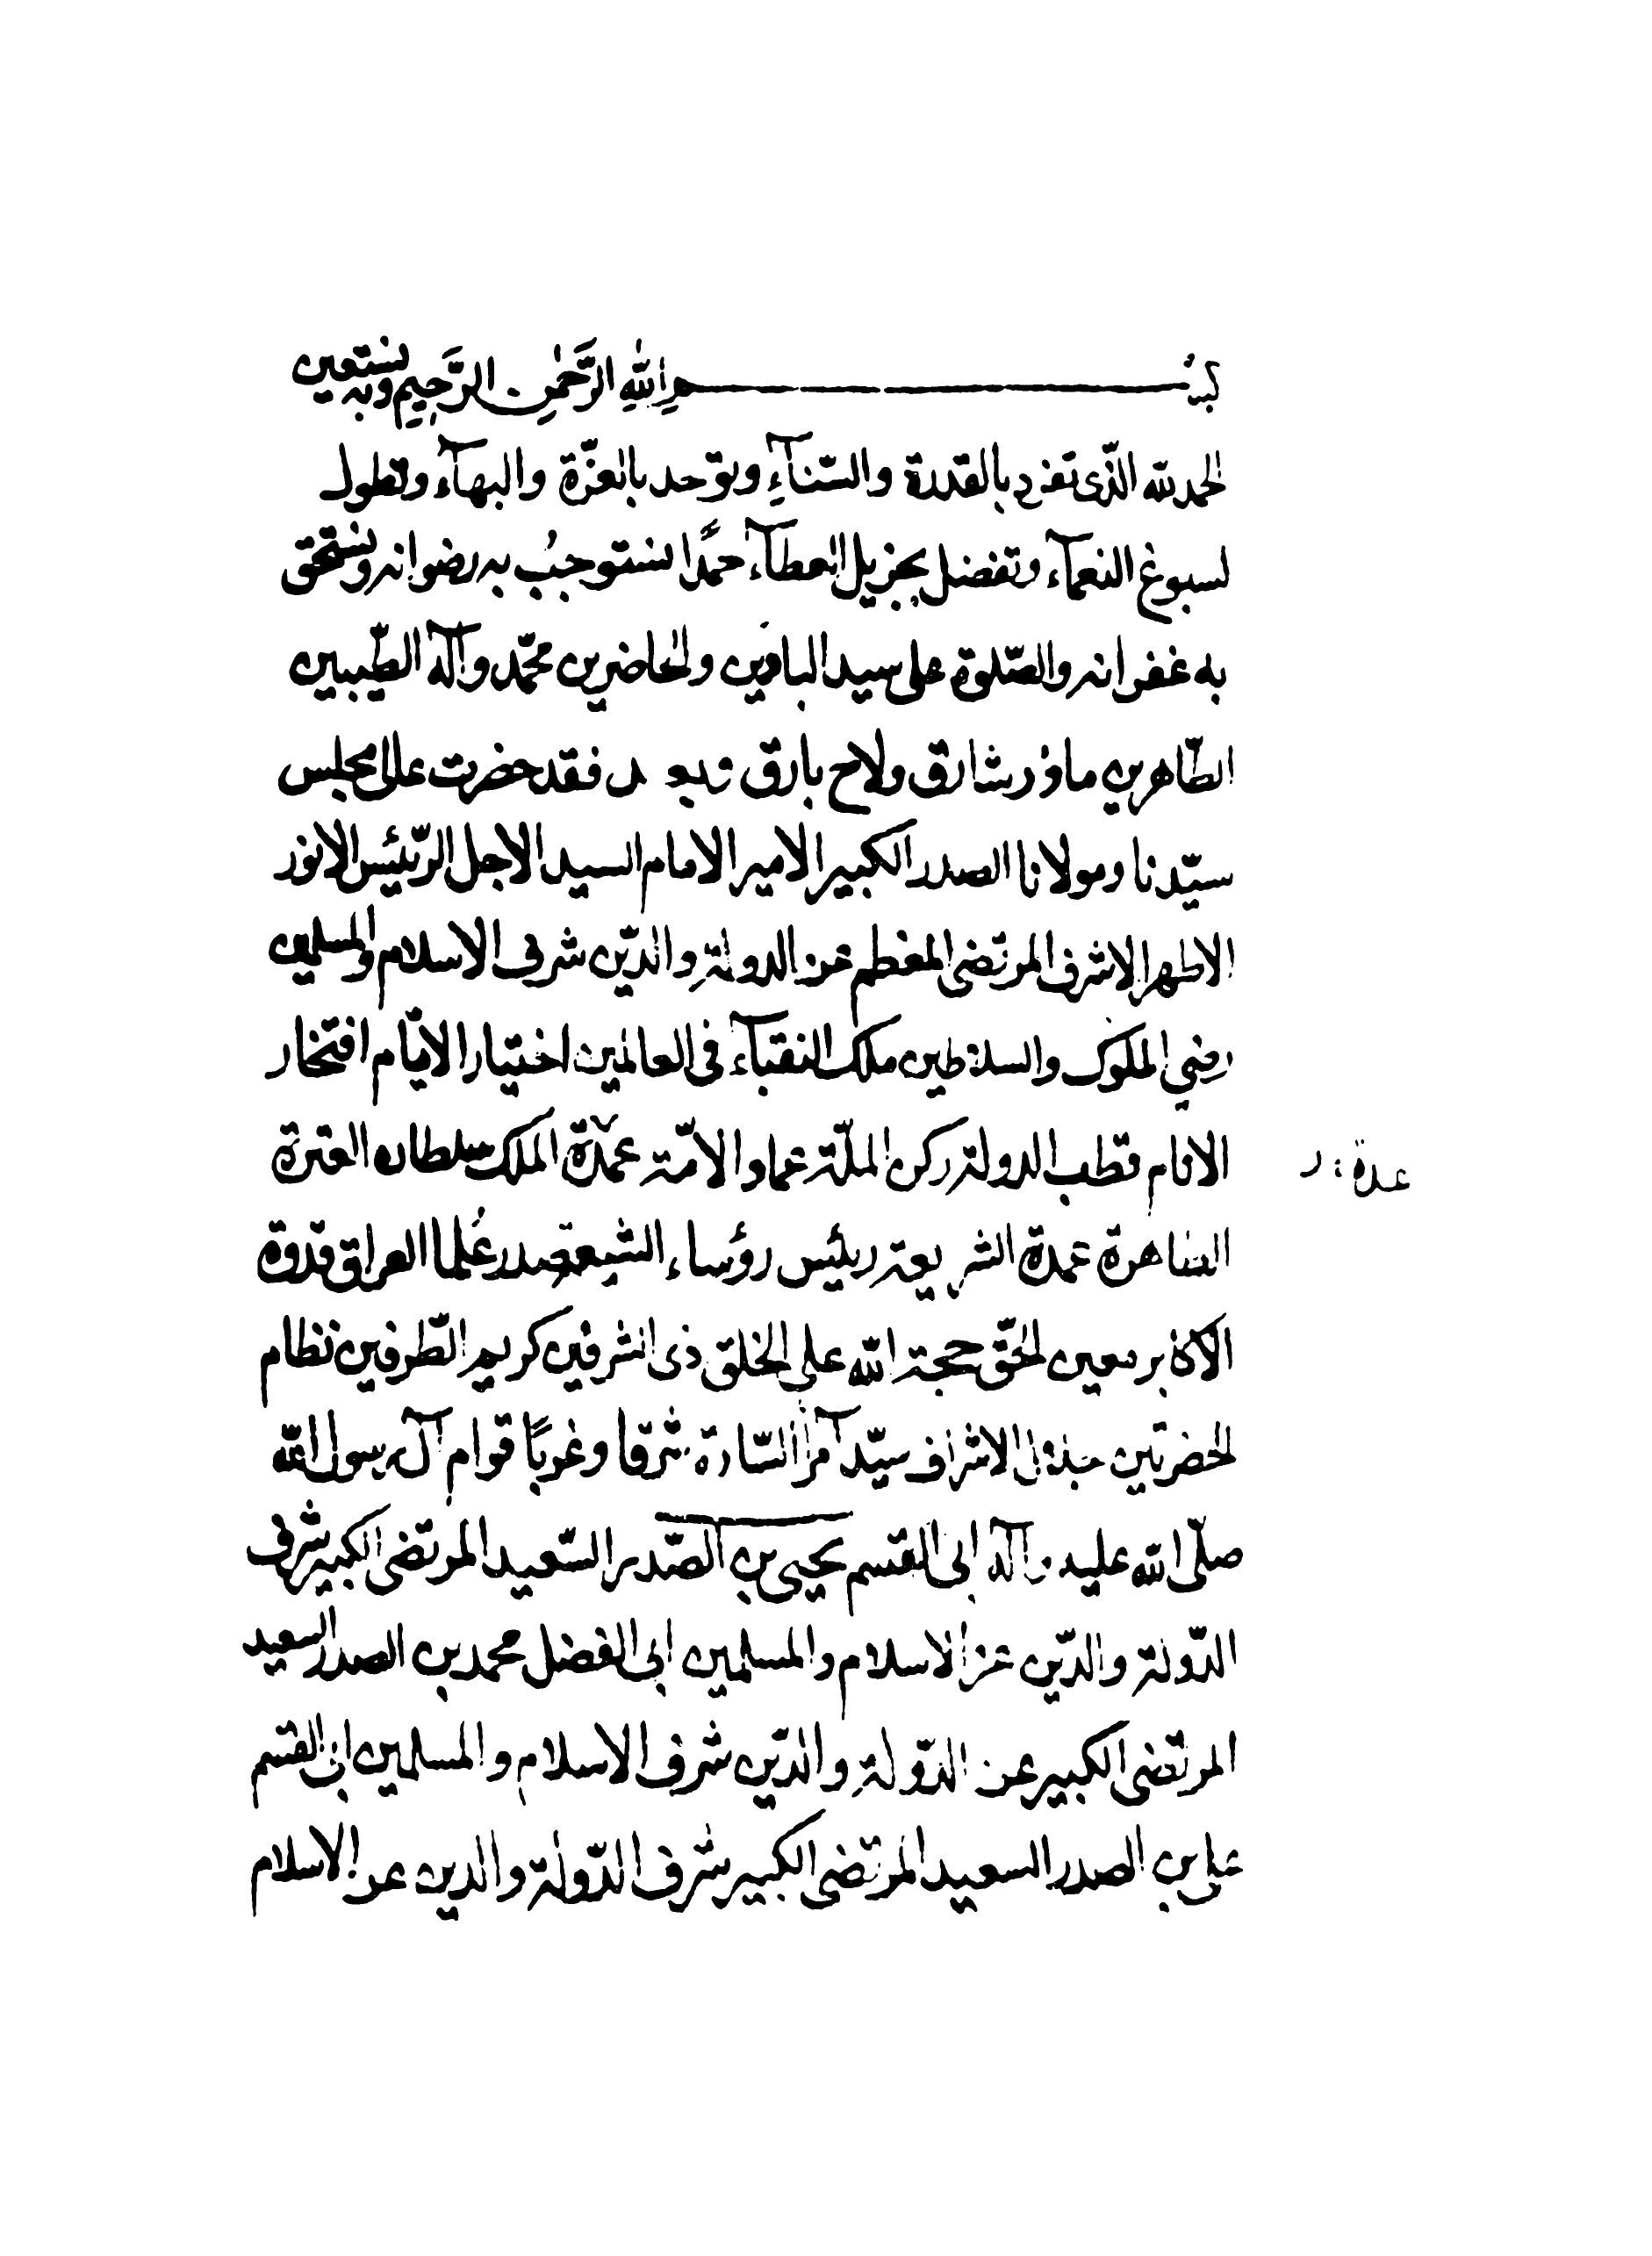 بسم الله الرَّحمٰن الرَّحِيم وبه نستعين
الحمد لله الذّى تفرد بالقدرة والسّنآءِ وتوحد بالعزّة والبهآء وتطول
لسبوغ النعمآء وتفضل بجزيل العطآء حمدًا نستوجبُ به رضوانه ونستحق
به غفرانه والصّلوة على سيد البادين والحاضرين محمّد وآله الطيّبين
الطّاهرين ماذر شارق ولاح بارق وبعد فقد حضرت عالى مجلس
سيّدنا ومولانا الصدر الكبير الامير الامام السيد الاجل الرّئيس الانور
الاطهر الاشرف المرتضى المعظم عز الدولةِ والدّين شرف الاسلام والمسلمين
رضي الملوك والسلاطين ملك النقبآء فى العالمين اختيار الايّام افتخار
الانام قطب الدولة ركن الملّة عماد الامّة عمدة الملك سلطان العترة
عدة : ر
الطاهرة عمدة الشريعة رئيس رؤساء الشيعة صدر عُلما العراق قدوة
الاكابر معين الحقّ حجة الله على الخلق ذى الشرفين كريم الطّرفين نظام
الحضرتين جلال الاشراف سيّد أمرآ السّادة شرقا وغربًا قوام آل رسول الله
صلّى الله عليه وآله ابى القسم يحيى بن الصّدر السّعيد المرتضى الكبير شرف
الدّولة والدّين عز الاسلام والمسلمين ابى الفضل محمد بن الصدر السعيد
المرتضى الكبير عز الدّولةِ والدّين شرف الاسلام والمسلمين ابى القسم
على بن الصدر السعيد المرتضى الكبير شرف الدّولة والدين عز الاسلام